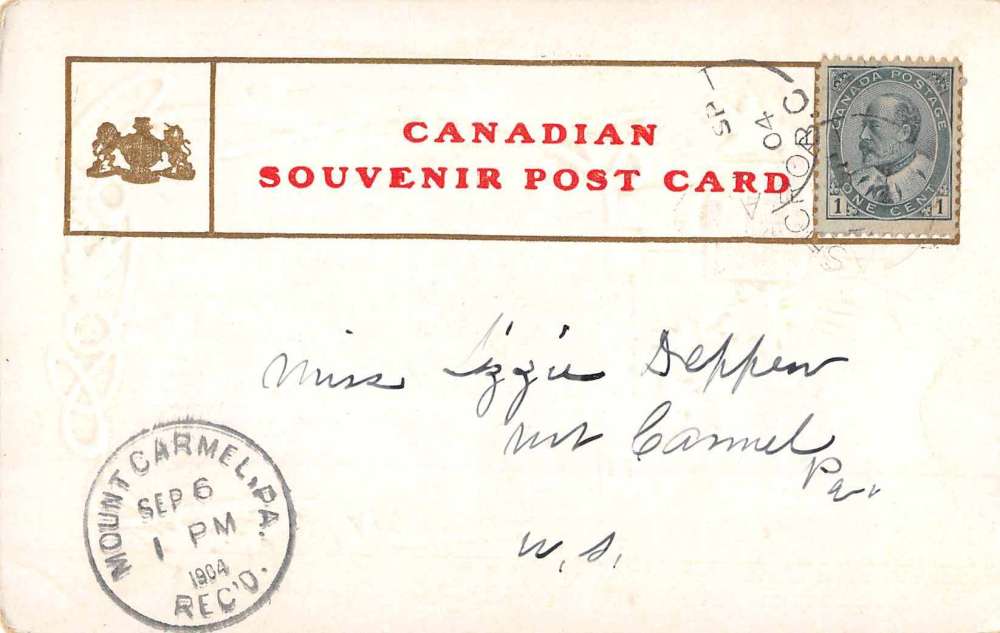 CANADIAN
SOUVENIR POST CARD
SP
04
CANADA POSTAGE
1 ONE CENT 1
Miss Lizzie Deppen
Mt Carmel
Pa.
U.S.
MOUNT CARMEL, PA.
SEP 6
1 PM
1904
REC'D.